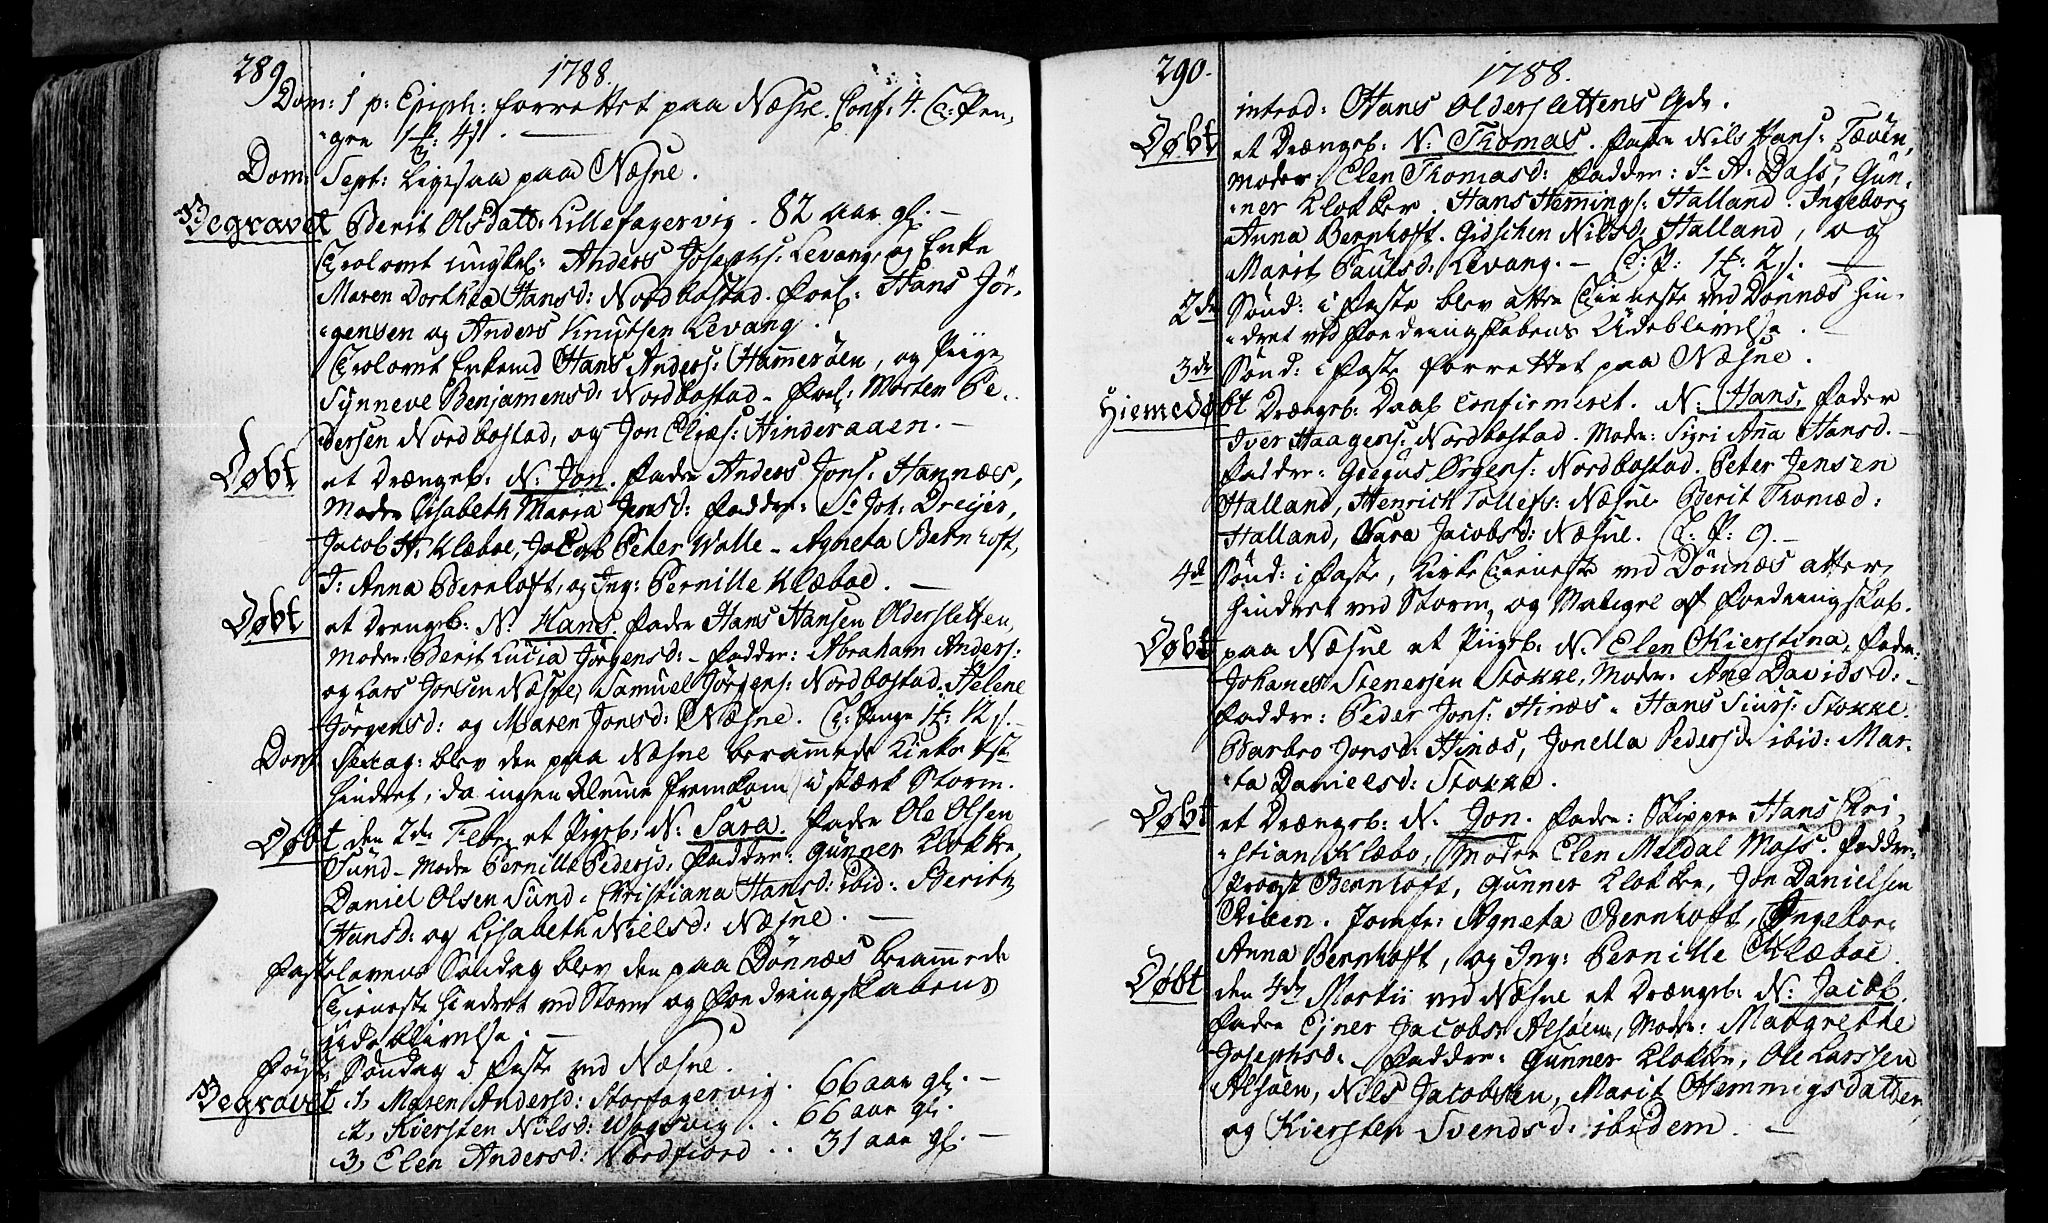 289
1788.
Dom: 1 p: Epiph: forrettet paa Næsne. Conf: 4. Q: Pen-
-gre
Dom: Sept: ligesaa paa Næsne.
Begravet Berit Olsdatt: Lillefagervig. 82 aar gl. —
Trolovet ungkl: Anders Josephs: Levang, og Enke
Maren Dorthea Hansd: Nordbostad. Forl: Hans Jör-
-gensen og Anders Knutsen Levang.
Trolovet Enkemd Hans Anders: Hammeröen, og Piige
Synneve Benjamensd: Nordbostad – Forl: Morten Pe-
dersen Nordbostad, og Jon Elias: Hinderaaen. —
Døbt et Drængeb: N: Jon. Fader Anders Jons: Hannæs,
Moder Lisabeth Maria Jensd: Faddre: Sr Joh: Dreyer,
Jacob H: Klæboe, Jacob Peter Walle – Agneta Bernhoft,
J: Anna Bernhoft, og Ing: Pernille Klæboe. —
Døbt et Drengeb: N. Hans. Fader Hans Hansen Oldersletten,
Moder: Berit Lucia Jörgensd: – Faddre: Abraham Anders:
og Lars Jonsen Næsne, Samuel Jörgens: Nordbostad. Helene
Jörgensd: og Maren Jonsd: Næsne. 
Dom. Sexag: blev den paa Næsne berammede Kirke
hindret, da ingen Almue fremkom i stærk Storm.
Døbt den 2de Febr: et Pigeb: N: Sara. Fader Ole Olsen
Sund – Moder Pernille Pedersd: Faddre: Gunner Klokker,
Daniel Olsen Sund. Christiana Hansd: ibid: Berith
Hansd: og Lisabeth Nielsd: Næsne. —
Fastelavens Søndag blev den paa Dönnæs berammede
Tieneste hindret ved Storm og Fordringskabens
udeblivelse. —
Først: Søndag i Faste ved Næsne.
Begravet 1, Maren Andersd: Storfagervig. 66 aar gl. —
2, Kiersten Nilsd: . . 66 aar gl.
3, Elen Andersd: Nordfiord . . 31 aar gl. —
290.
1788.
introd: Hans Olderslettens
Døbt et Drængeb: N: Thomas. Fader Nils Hans:
Moder Elen Thomasd: Faddre: Sr A: Dass, Gun-
-ner Klokker. Hans Hemings: Halland. Ingeborg
Anna Bernhoft. Gidschen Nilsd: Halland, og
Marit Paulsd: Levang. —
2den Sönd: i Faste blev atter Tieneste ved Dönnæs hin-
-dret ved Fordringskabens Udeblivelse.
3de Sönd: i Faste forrettet paa Næsne.
Hiemedøbt Drængeb: Daab Confirmeret. N: Hans. Fader
Iver Haagens: Nordbostad. Moder: Sigri Anna Hansd. —
Faddre: Örgens: Nordbostad. Peter Jensen
Halland, Henrich Tollefs: Næsne. Berit Thomæd:
Halland, Sara Jacobsd: Næsne. 9. —
4de Sönd: i Faste, Kirke Tieneste ved Dönnæs atter
hindret ved Storm, og Mangel af Fordringskab.
Døbt paa Næsne et Piigeb: N: Elen Kierstina, Fader:
Johanes Stenersen Stokke, Moder: Ane Davidsd: –
Faddre: Peder Jons: Hinæs. Hans Siurs: Stokke.
Barbro Jonsd: Hinæs, Jonella Pedersd: ibid: Mar-
-ta Danielsd: Stokke.
Døbt et Drængeb: N. Jon. Fader: Skipper Hans Chri-
-stian Klæbo, Moder Elen Meldal Mohs. Faddre:
Provst Bernhoft, Gunner Klokker, Jon Danielsen
. Jomfr: Agneta Bernhoft, Ingeborg
Anna Bernhoft, og Ing: Pernille Klæboe.
Døbt den 4de Martii ved Næsne et Drængeb: N: Jacob.
Fader Ejner Jacobs: Alsöen, Moder: Margrethe
Josephsd: Faddre: Gunner Klokker, Ole Larssen
Alsöen, Nils Jacobsen, Marit Hemmigsdatter,
og Kiersten Svendsd: ibidem. —